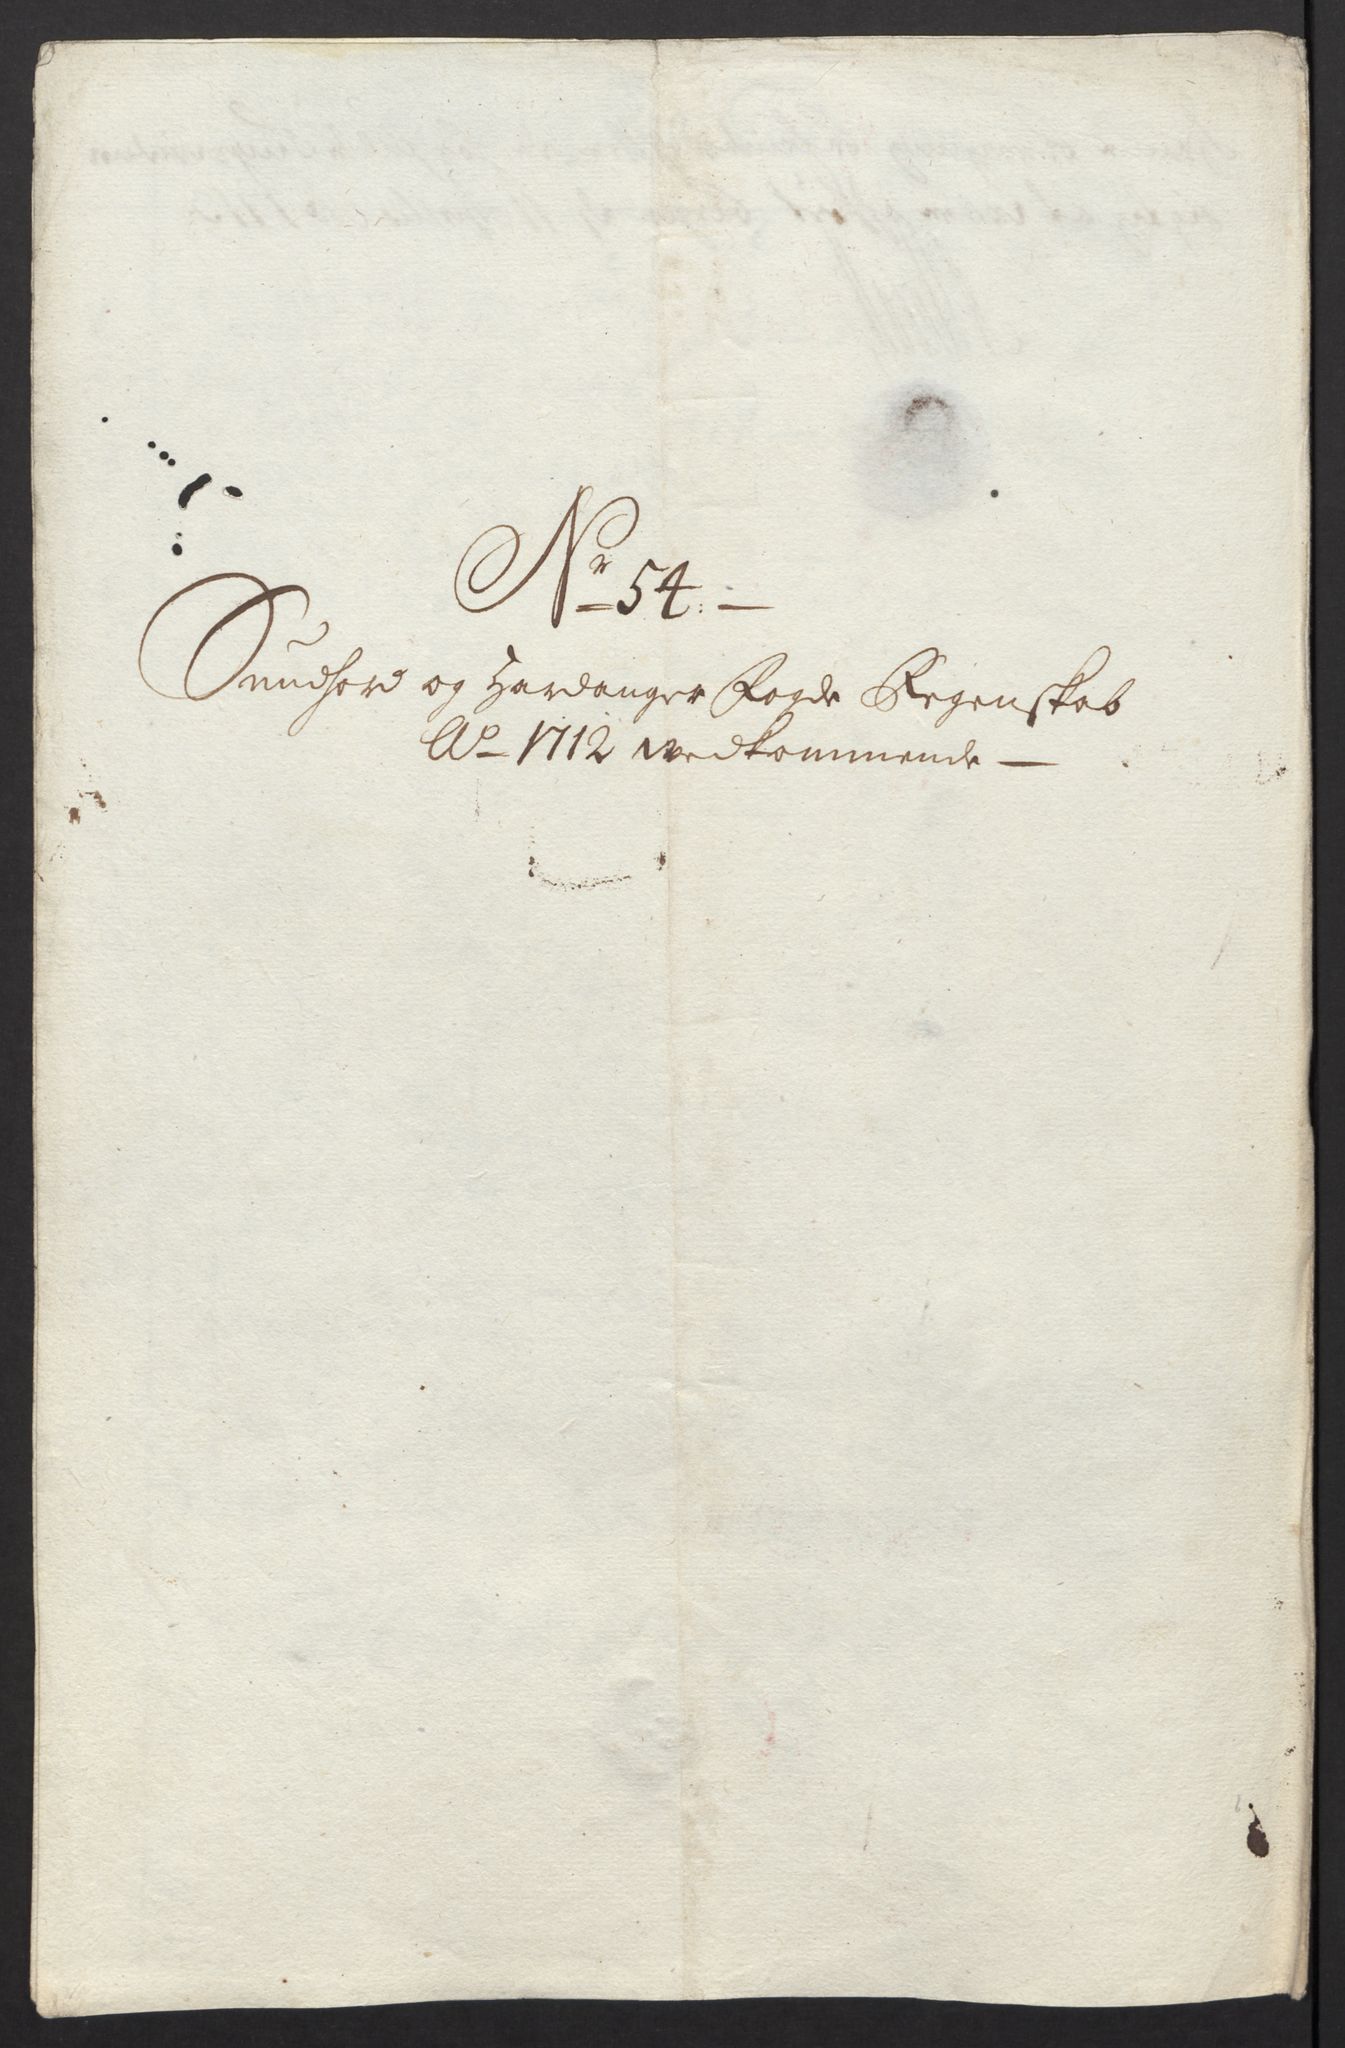 Nr 54. —
Sundhord og Hardanger Fogde Regenskab
Ao 1712 vedkommende —